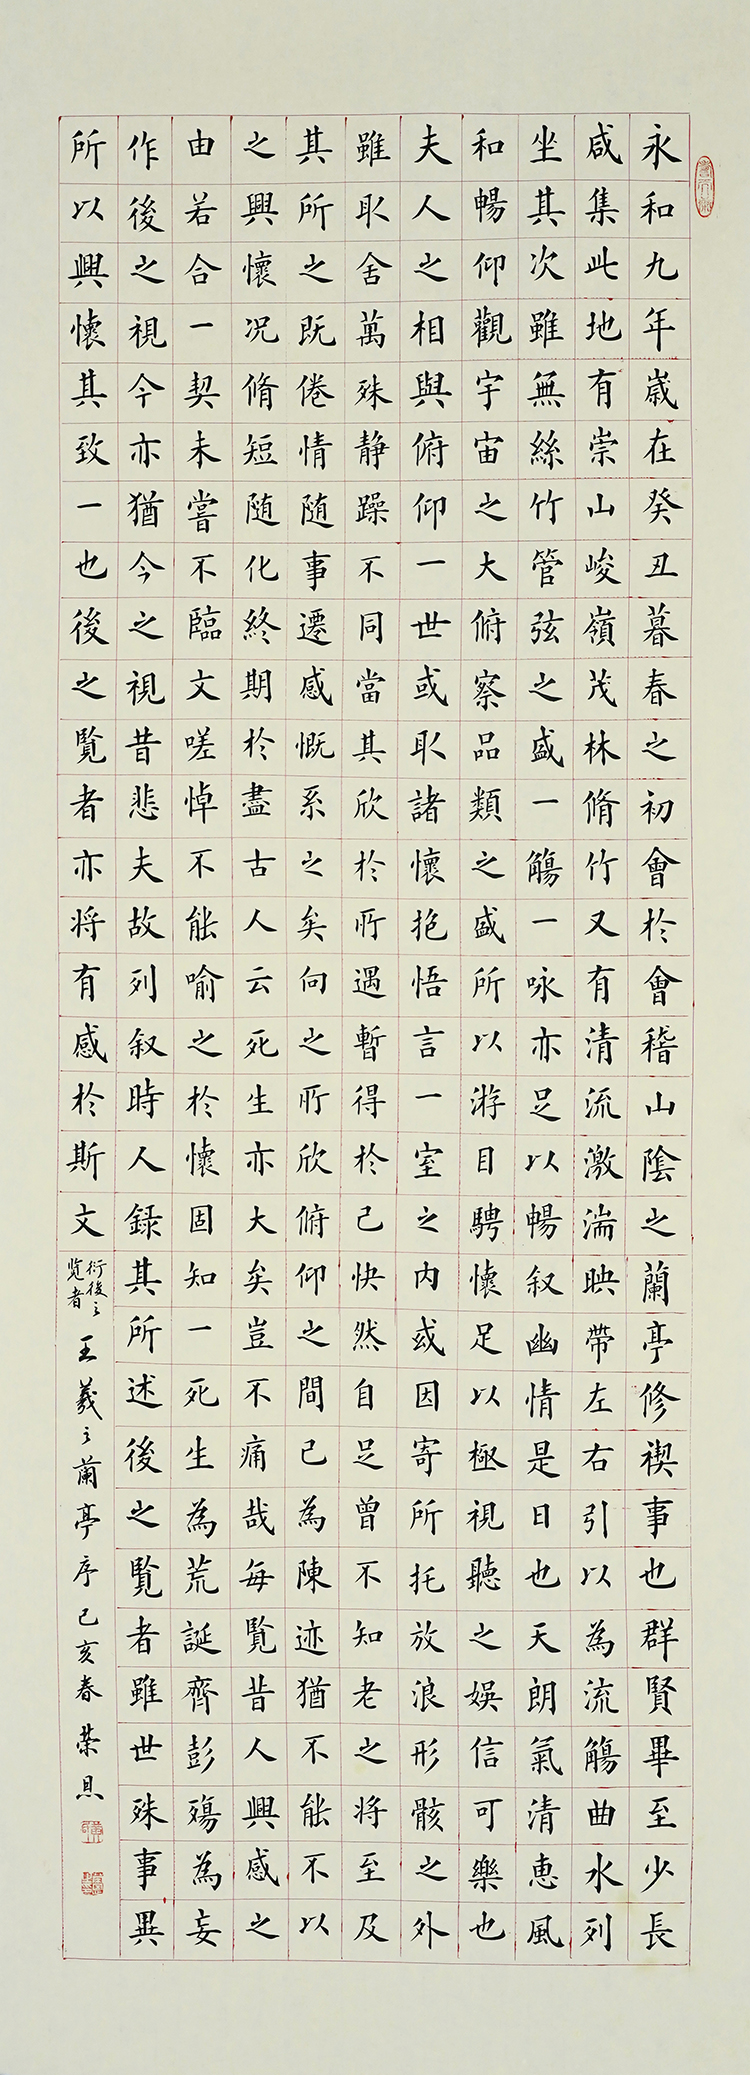 永和九年歲在癸丑暮春之初會於會稽山陰之蘭亭修禊事也群賢畢至少長
咸集此地有崇山峻嶺茂林脩竹又有清流激湍映帶左右引以為流觴曲水列
坐其次雖無絲竹管弦之盛一觴一咏亦足以暢叙幽情是日也天朗氣清惠風
和暢仰觀宇宙之大俯察品類之盛所以游目騁懷足以極視聽之娛信可樂也
夫人之相與俯仰一世或取諸懷抱悟言一室之内或因寄所托放浪形骸之外
雖取舍萬殊静躁不同當其欣於所遇暫得於己快然自足曾不知老之將至及
其所之既倦情随事遷感慨系之矣向之所欣俯仰之間已為陳迹猶不能不以
之興懷况脩短随化終期於盡古人云死生亦大矣豈不痛哉每覧昔人興感之
由若合一契未嘗不臨文嗟悼不能喻之於懷固知一死生為荒誕齊彭殤為妄
作後之視今亦猶今之視昔悲夫故列叙時人録其所述後之覧者雖世殊事異
所以興懷其致一也後之覧者亦将有感於斯文
衍後之
览者
王羲之蘭亭序己亥春荣恩